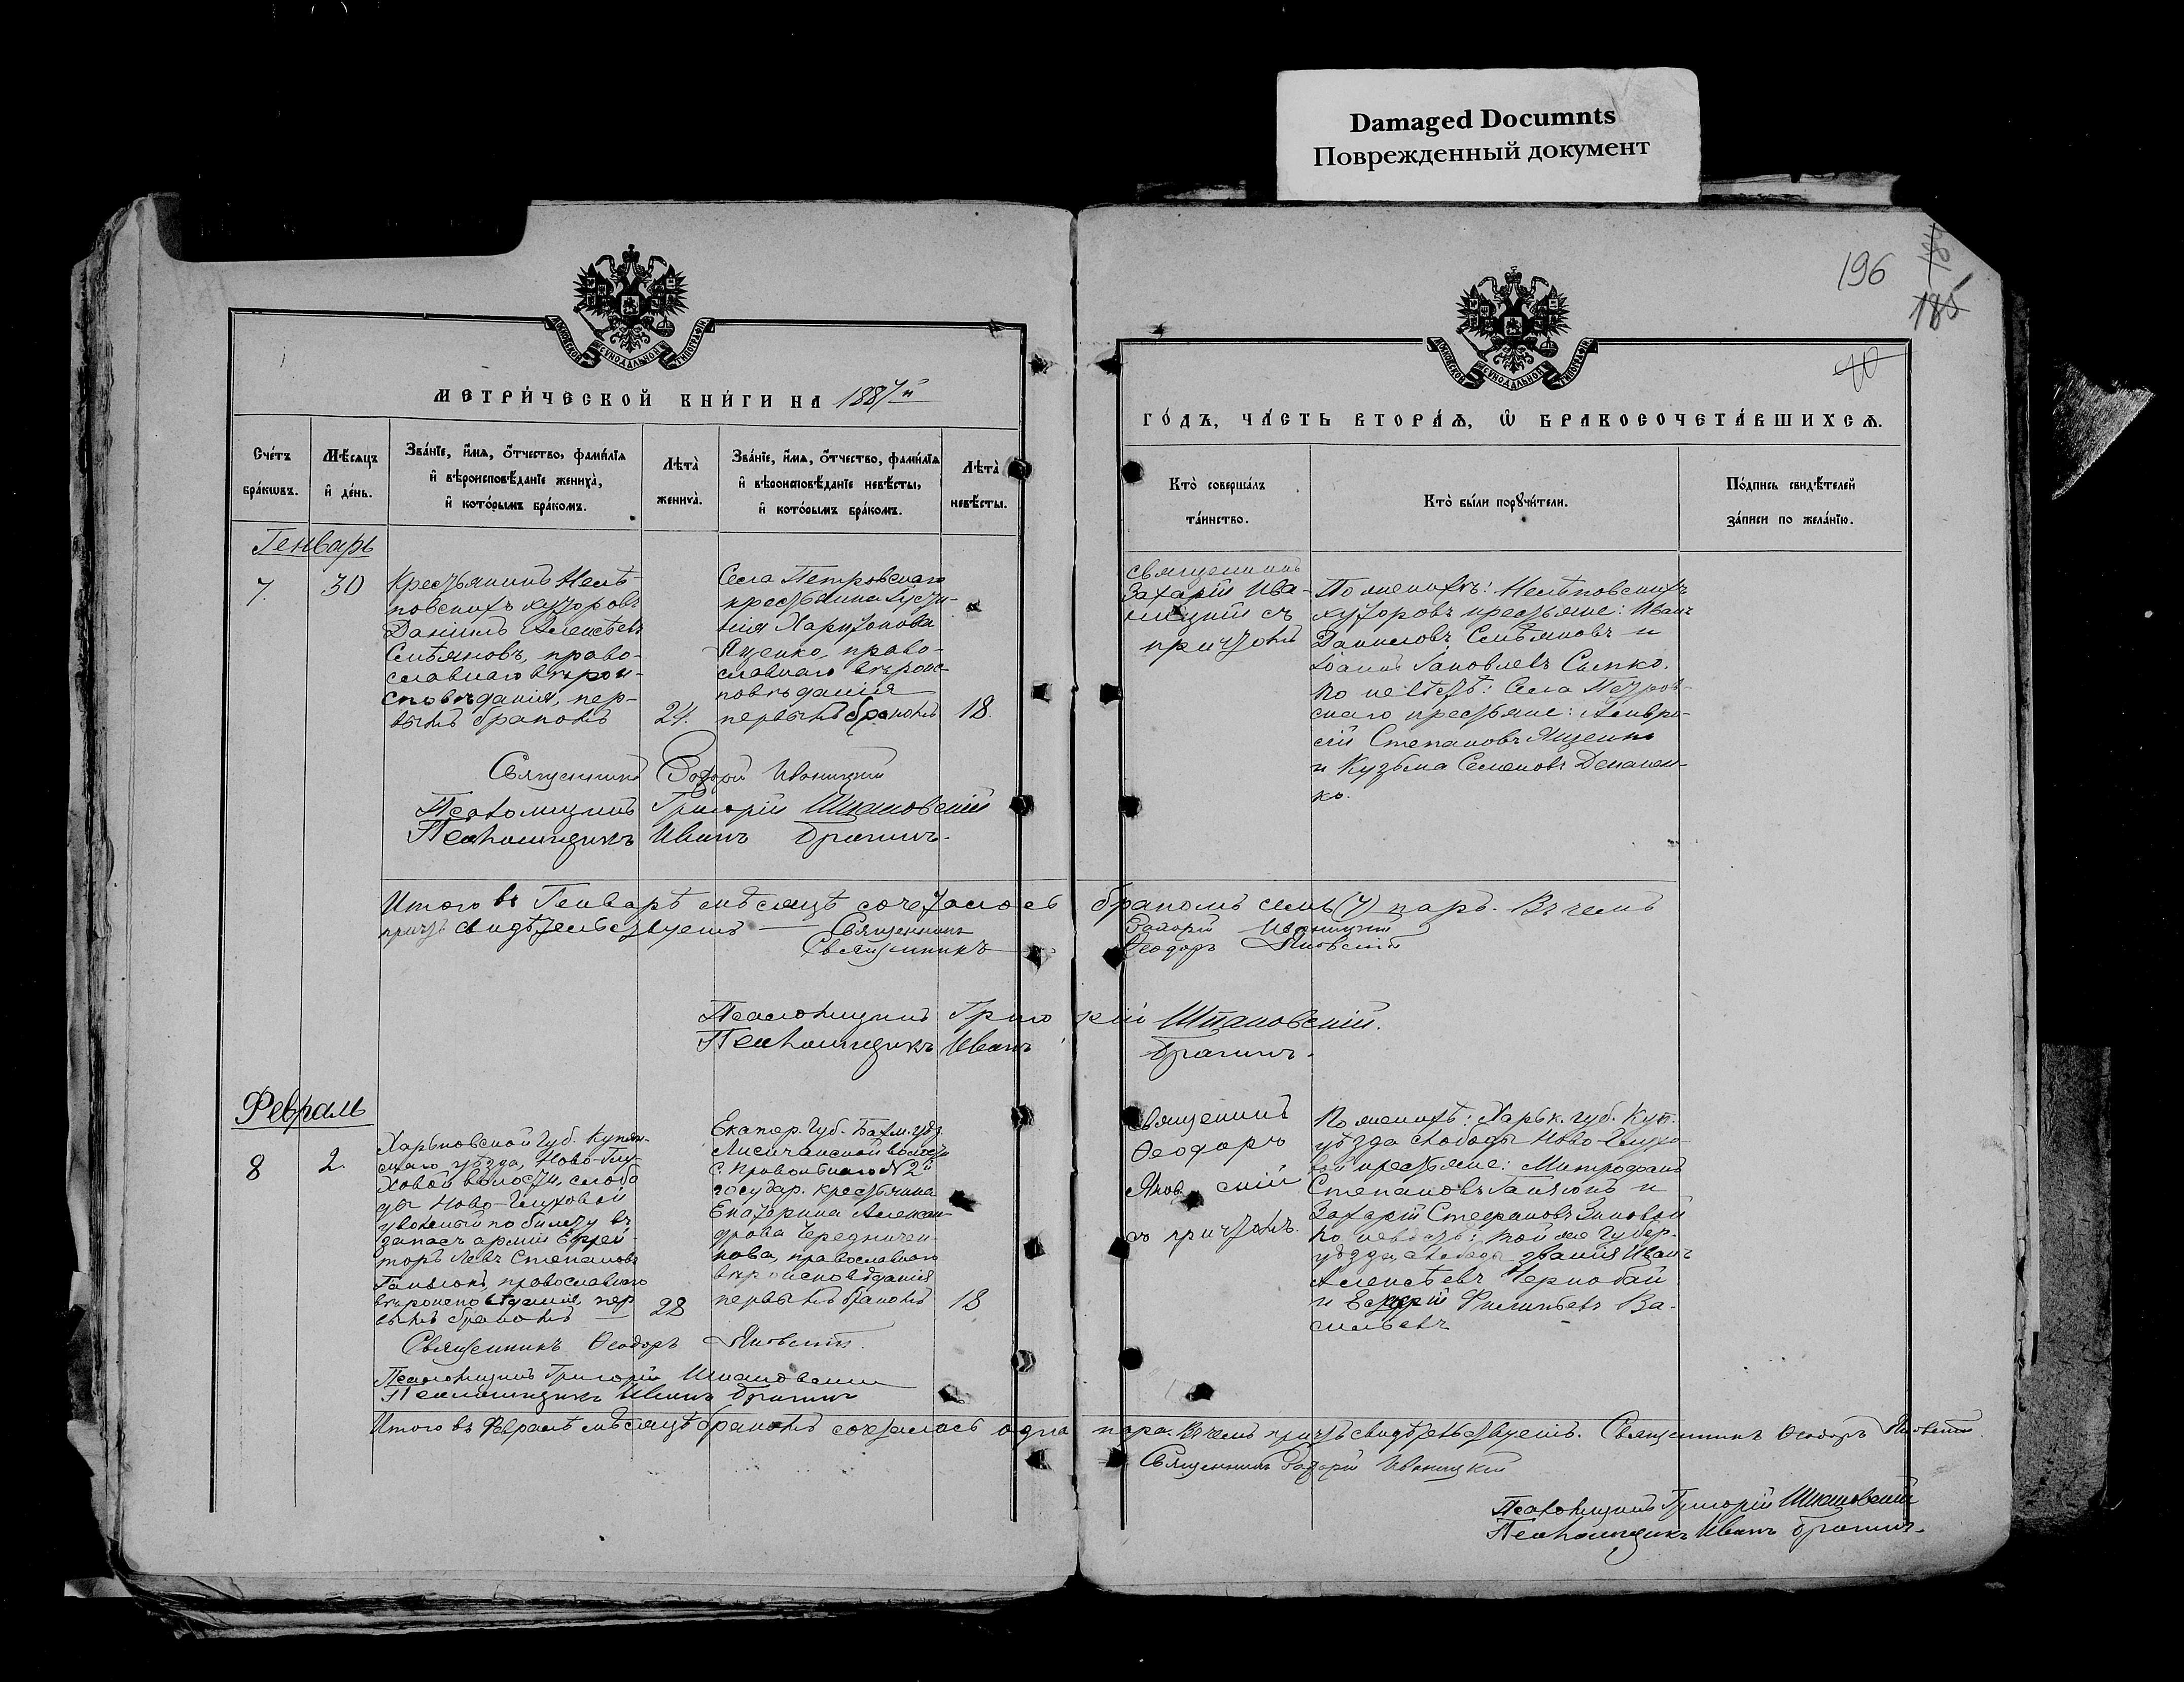 Damaged Documnts
Поврежденный документ
196
185
МЕТРИ́ЧЕСКОЙ КНИ́ГИ НА 1887й
ГО́ДЪ, ЧА́СТЬ ВТОРА́Ѧ, Ѽ БРАКОСОЧЕТА́ВШИХСѦ.
Сче́тъ бра́кѡвъ.
Мѣ́сѧцъ и҆ де́нь.
Зва́нїе, и҆́мѧ, ѻ҆́тчество, фами́лїѧ
и҆ вѣроисповѣ́данїе жениха̀,
и҆ кото́рымъ бра́комъ.
Лѣта̀ жениха̀.
Зва́нїе, и҆́мѧ, ѻ҆́тчество, фами́лїѧ
и҆ вѣроисповѣ́данїе невѣ́сты,
и҆ кото́рымъ бра́комъ.
Лѣта̀ невѣ́сты.
Кто̀ соверша́лъ
та́инство.
Кто̀ бы́ли порꙋчи́тели.
По́дпись свидѣ́телей
за́писи по жела́нїю.
Генварь
7.
30
Крестьянинъ Нелѣ-
повскихъ хуторовъ
Даніилъ Алексѣевъ
Смѣяновъ, право-
славнаго вѣрои-
сповѣданія, пер-
вымъ бракомъ
24.
Села Петровскаго
крестьянка Густи-
нія Харитонова
Яценко, право-
славнаго вѣроис-
повѣданія
первымъ бракомъ
18.
Священникъ
Захарій Ива-
ницкій съ
причтомъ
По женихѣ: Нелѣповскихъ
хуторовъ крестьяне: Иванъ
Данииловъ Смѣяновъ и
Іоаннъ Іаковлевъ Сипко.
По невѣстѣ: Села Петров-
скаго крестьяне: Амвро-
сій Степановъ Яценко
и Кузьма Семеновъ Демьянен-
ко.
Священникъ Захарій Иваницкій
Псаломщикъ Григорій Шпаковскій
Псаломщикъ Иванъ Брагинъ.
Итого въ Генварѣ мѣсяцѣ сочеталось бракомъ семь (7) паръ. Въ чемъ
причтъ свидѣтельствуетъ — Священникъ Захарій Иваницкій
Священникъ Ѳеодоръ Яновскій
Псаломщикъ Григорій Шпаковскій.
Псаломщикъ Иванъ Брагинъ.
Февраль
8
2.
Харьковской Губ. Купян-
скаго уѣзда, Ново-Глу-
ховой волости, слобо
ды Ново-Глуховой
уволенный по билету въ
запасъ арміи Ефрей-
торъ Левъ Степановъ
Гапіюкъ, православнаго
вѣроисповѣданія, пер
вымъ бракомъ
28
Екатер. Губ. Бахм. уѣз.
Лисичанской волости
С. Привольнаго № 2й
государ. крестьянка
Екатерина Алексан-
дрова Чередничен-
кова, православнаго
вѣроисповѣданія
первымъ бракомъ
18
Священникъ
Ѳеодоръ
Яновскій
съ причтомъ.
По женихѣ: Харьк. губ. Куп.
уѣзда слободы Ново-Глухо-
вой крестьяне: Митрофанъ
Степановъ Гапіюкъ и
Захарій Стефановъ
По невѣстѣ: той же Губер.
уѣзда, слобода званія Иванъ
Алексѣевъ Чернобай
и Филиппевъ Ва-
сильевъ
Священникъ Ѳеодоръ Яновскій.
Псаломщикъ Григорій Шпаковскій
Псаломщикъ Иванъ Брагинъ
Итого въ Февралѣ мѣсяцѣ бракомъ сочеталась одна пара. Въ чемъ причтъ свидѣтельствуетъ. Священникъ Ѳеодоръ Яновскій.
Священникъ Захарій Иваницкій
Псаломщикъ Григорій Шпаковскій
Псаломщикъ Иванъ Брагинъ.